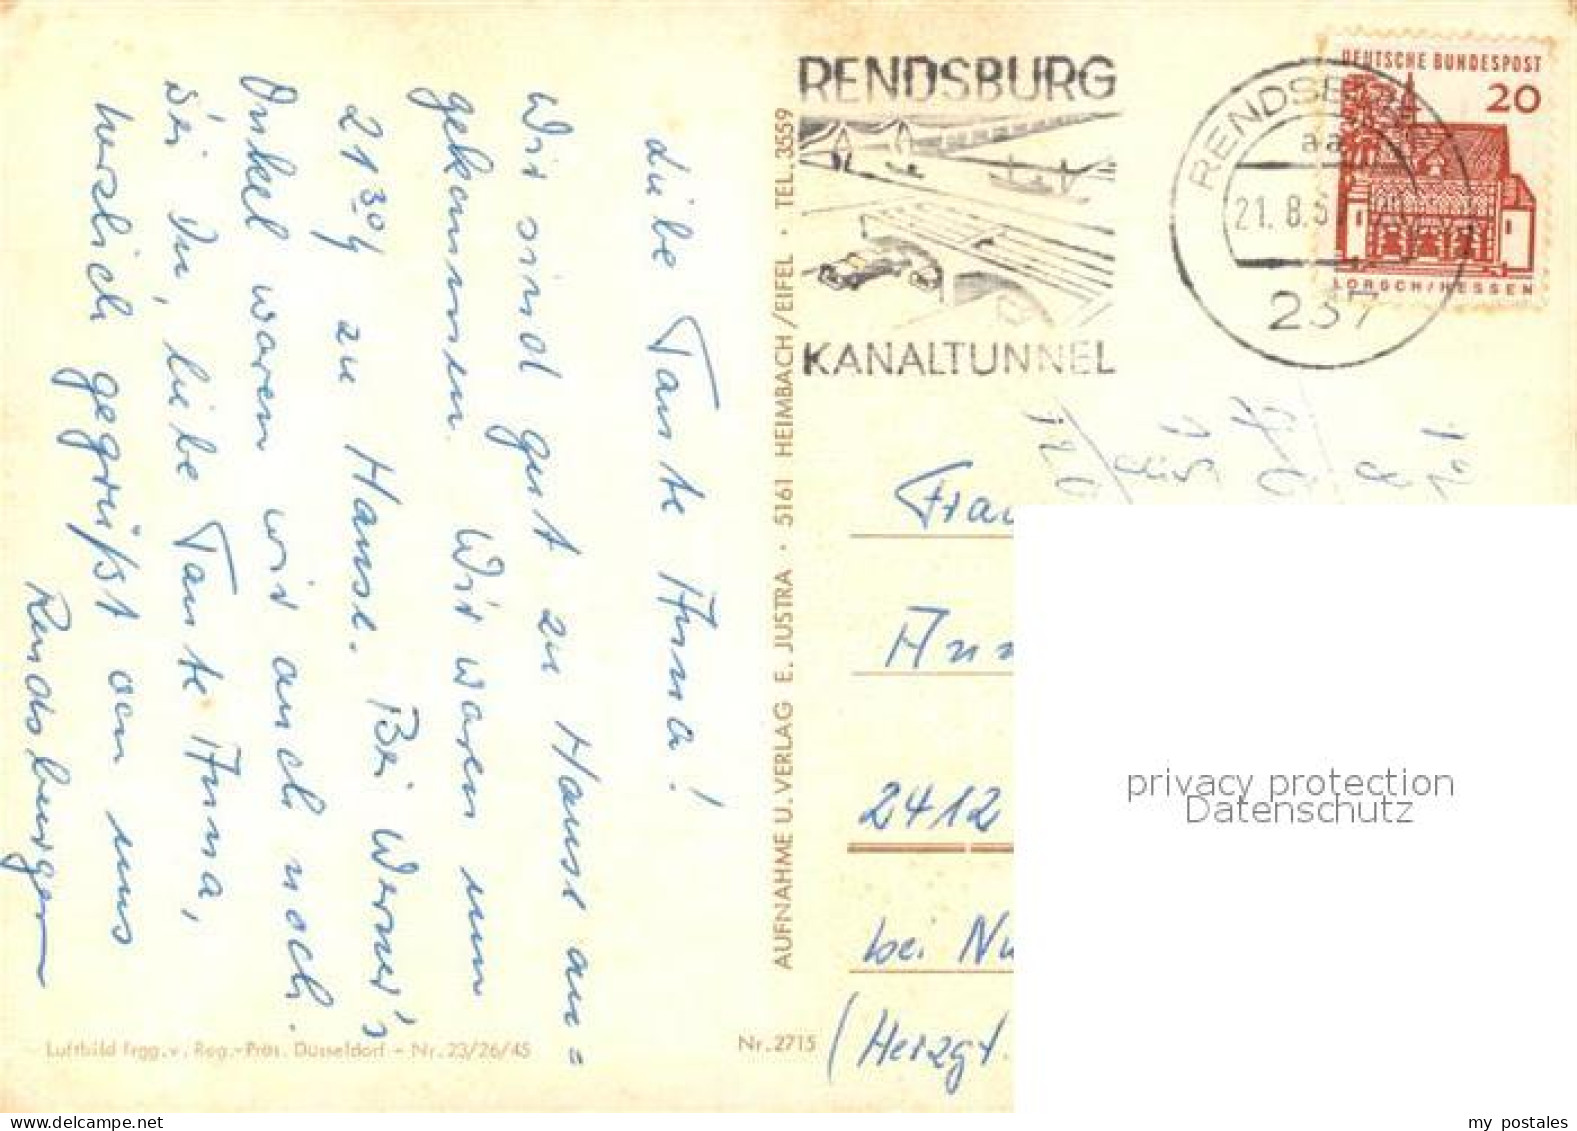 Liebe Tante Anna!
Wir sind gut zu Hause an=
gekommen. Wir waren um
21³⁰ʰ zu Hause. Bei Werner's
Onkel waren wir auch noch.
Sei Du, liebe Tante Anna,
herzlich gegrüßt von uns
Rendsburger
Luftbild frgg. v. Reg.-Präs. Düsseldorf - Nr. 23/26/45
Nr. 2715
AUFNAHME U. VERLAG E. JUSTRA · 5161 HEIMBACH/EIFEL · TEL. 3559
RENDSBURG
KANALTUNNEL
RENDSBURG
aa
21.8.6
237
DEUTSCHE BUNDESPOST
20
LORSCH/HESSEN
Frau
Ann
2412
bei Nu
(Herzgt.
privacy protection
Datenschutz
my postales